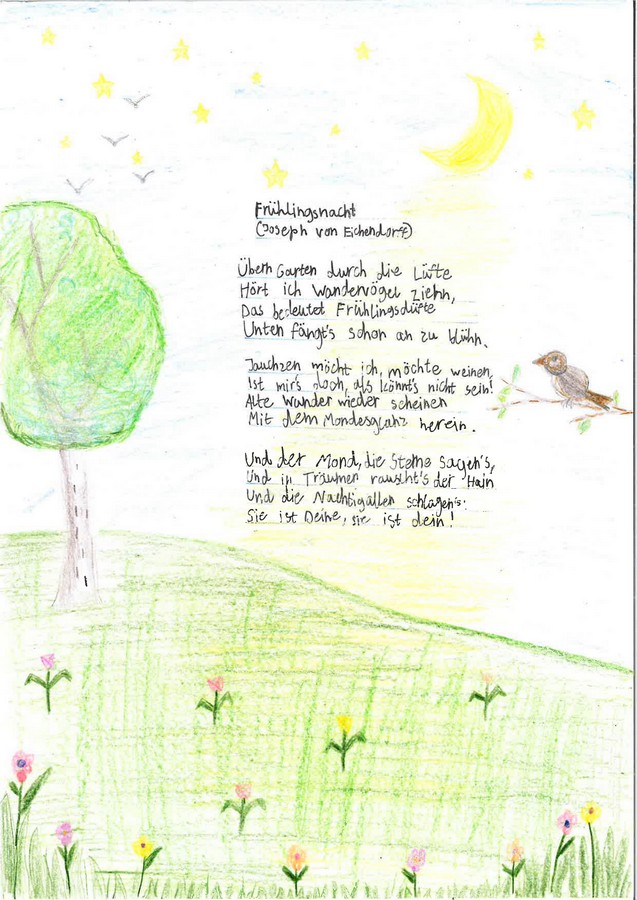 Frühlingsnacht
(Joseph von Eichendorff)
Übern Garten durch die Lüfte
Hört ich Wandervögel ziehn,
Das bedeutet Frühlingsdüfte
Unten fängt's schon an zu blühn.
Jauchzen möcht ich, möchte weinen,
Ist mir's doch, als könnt's nicht sein!
Alte Wunder wieder scheinen
Mit dem Mondesglanz herein.
Und der Mond, die Sterne sagen's,
Und in Träumen rauscht's der Hain
Und die Nachtigallen schlagen's:
Sie ist Deine, sie ist dein!